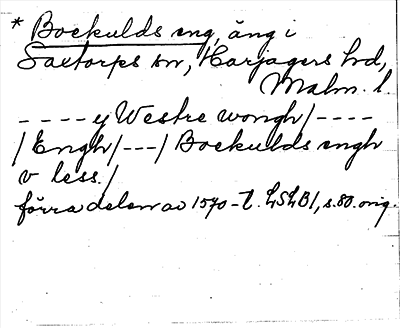 * Bockulds eng, äng i
Saxtorps sn, Harjagers hd,
Malm. l.
----y Westre wongh/----
/Engh/---/Bockulds engh
v less./
förra delen av 1570-t. LSLB1, s. 80. orig.